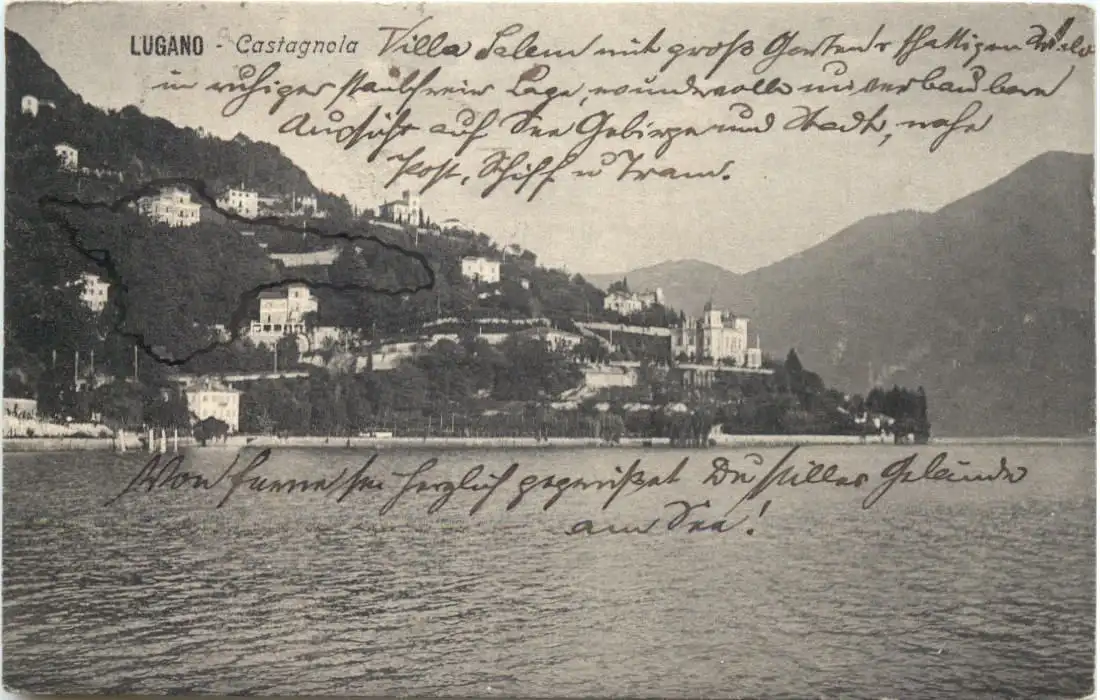 LUGANO - Castagnola
Villa Salem mit groß Garten & schattigen Wald
in ruhiger staubfreier Lage, wundervolle unverbaubare
Aussicht auf See Gebirge und Stadt, nahe
Post, Schiff u Tram.
Von ferne sei herzlich gegrüßet Du stilles Gelände
am See!